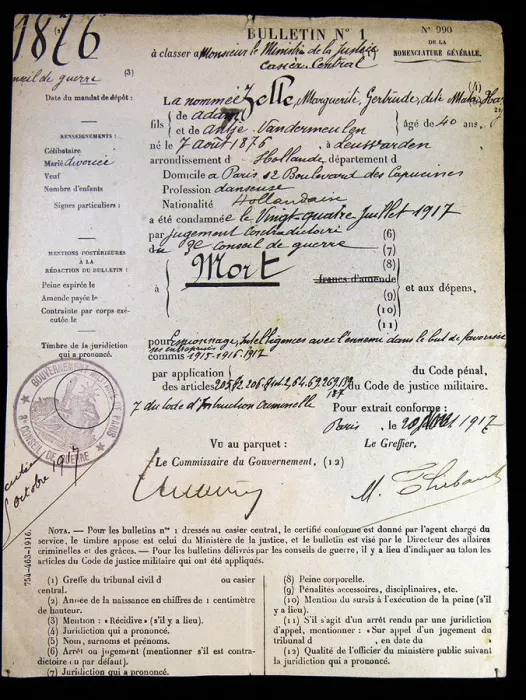 1876
BULLETIN N° 1
N° 990
DE LA
NOMENCLATURE GÉNÉRALE.
à classer a Monsieur le Ministre de la Justice
Casier Central
Conseil de guerre
(3)
Date du mandat de dépôt:
La nommée Zelle, Marguerite, Gertrude, dite Mata Hari
(A)
fils de adam
et de antje Vandermeulen âgé de 40 ans
RENSEIGNEMENTS:
né le 7 août 1876 à Leuwarden
Célibataire
Marié divorcée
arrondissement d Hollande, département d
Veuf
Domicile a Paris 12 Boulevard des Capucines
Nombre d'enfants
Profession danseuse
Signes particuliers:
Nationalité Hollandaise
a été condamnée le Vingt-quatre Juillet 1917
par jugement Contradictoire (6)
du 3e Conseil de guerre (7)
MENTIONS POSTÉRIEURES
À LA
RÉDACTION DU BULLETIN:
à Mort
(8)
francs d'amende
(9)
et aux dépens,
(10)
(11)
Peine expirée le
Amende payée le
Contrainte par corps exécutée le
pour Espionnage, Intelligences avec l'ennemi dans le but de favoriser
ses entreprises
commis 1915-1916-1917
Timbre de la juridiction
qui a prononcé.
par application du Code pénal,
des articles 205, 206, 64, 69, 269, 189 du Code de justice militaire.
187
7 du Code d'Instruction Criminelle
Pour extrait conforme:
Paris le 1917
GOUVERNEMENT MILITAIRE DE PARIS
CONSEIL DE GUERRE
Vu au parquet:
Le Greffier,
Le Commissaire du Gouvernement, (12)
octobre
M. Thibaut
NOTA. — Pour les bulletins n° 1 dressés au casier central, le certifié conforme est donné par l'agent chargé du
service, le timbre appose est celui du Ministère de la justice, et le bulletin est visé par le Directeur des affaires
criminelles et des grâces. — Pour les bulletins délivrés par les conseils de guerre, il y a lieu d'indiquer au talon les
articles du Code de justice militaire qui ont été appliqués.
754-463-1916.
(1) Greffe du tribunal civil d ou casier
central.
(2) Année de la naissance en chiffres de 1 centimètre
de hauteur.
(3) Mention: « Récidive » (s'il y a lieu).
(4) Juridiction qui a prononcé.
(5) Nom, surnoms et prénoms.
(6) Arrêt ou jugement (mentionner s'il est contradictoire
ou par défaut).
(7) Juridiction qui a prononcé.
(8) Peine corporelle.
(9) Pénalités accessoires, disciplinaires, etc.
(10) Mention du sursis à l'exécution de la peine (s'il
y a lieu).
(11) S'il s'agit d'un arrêt rendu par une juridiction
d'appel, mentionner: « Sur appel d'un jugement du
tribunal d , en date du ».
(12) Qualité de l'officier du ministère public suivant
la juridiction qui a prononcé.